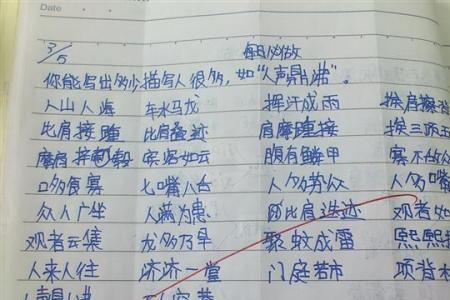 Date
3/5 每日必做
你能写出多少描写人很多,如"人声鼎沸"。
人山人海 车水马龙 挥汗成雨 挨肩擦
比肩接踵 比肩叠迹 肩摩踵接 挨三顶五
摩肩接毂 宾客如云 腹有鳞甲
口多食寡 七嘴八舌 人多势众 人多嘴
众人广坐 人满为患 比肩迭迹 观者如
观者云集 龙多乃旱 聚蚊成雷 熙熙
人来人往 济济一堂 门庭若市 项背
人声鼎沸